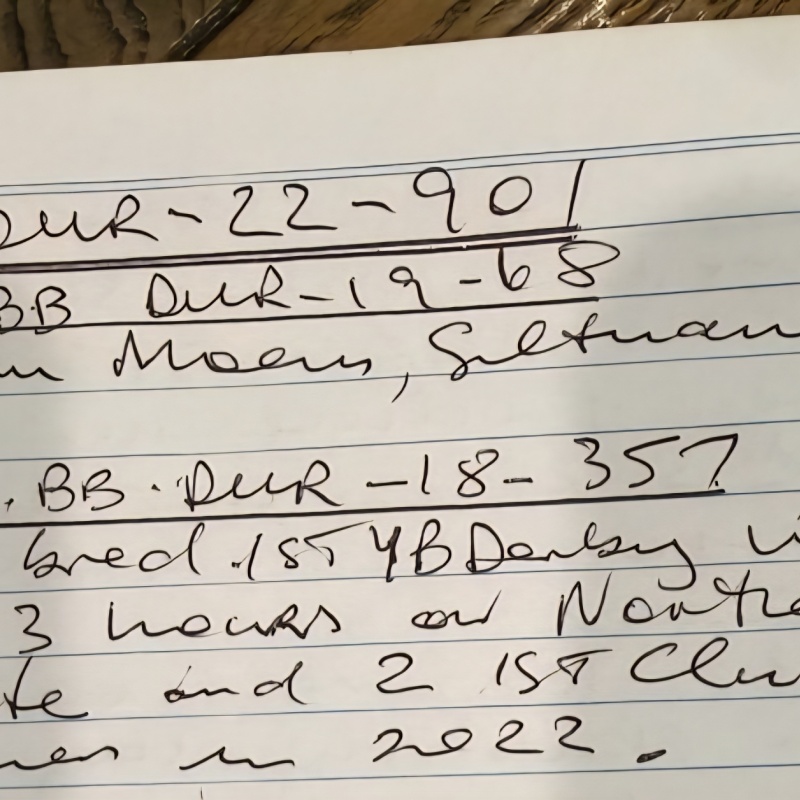 DUR-22-901
BB DUR-19-68
Moens,
BB. DUR-18-357
bred 1ST YB Derby
3 hours on
and 2 1ST
in 2022.